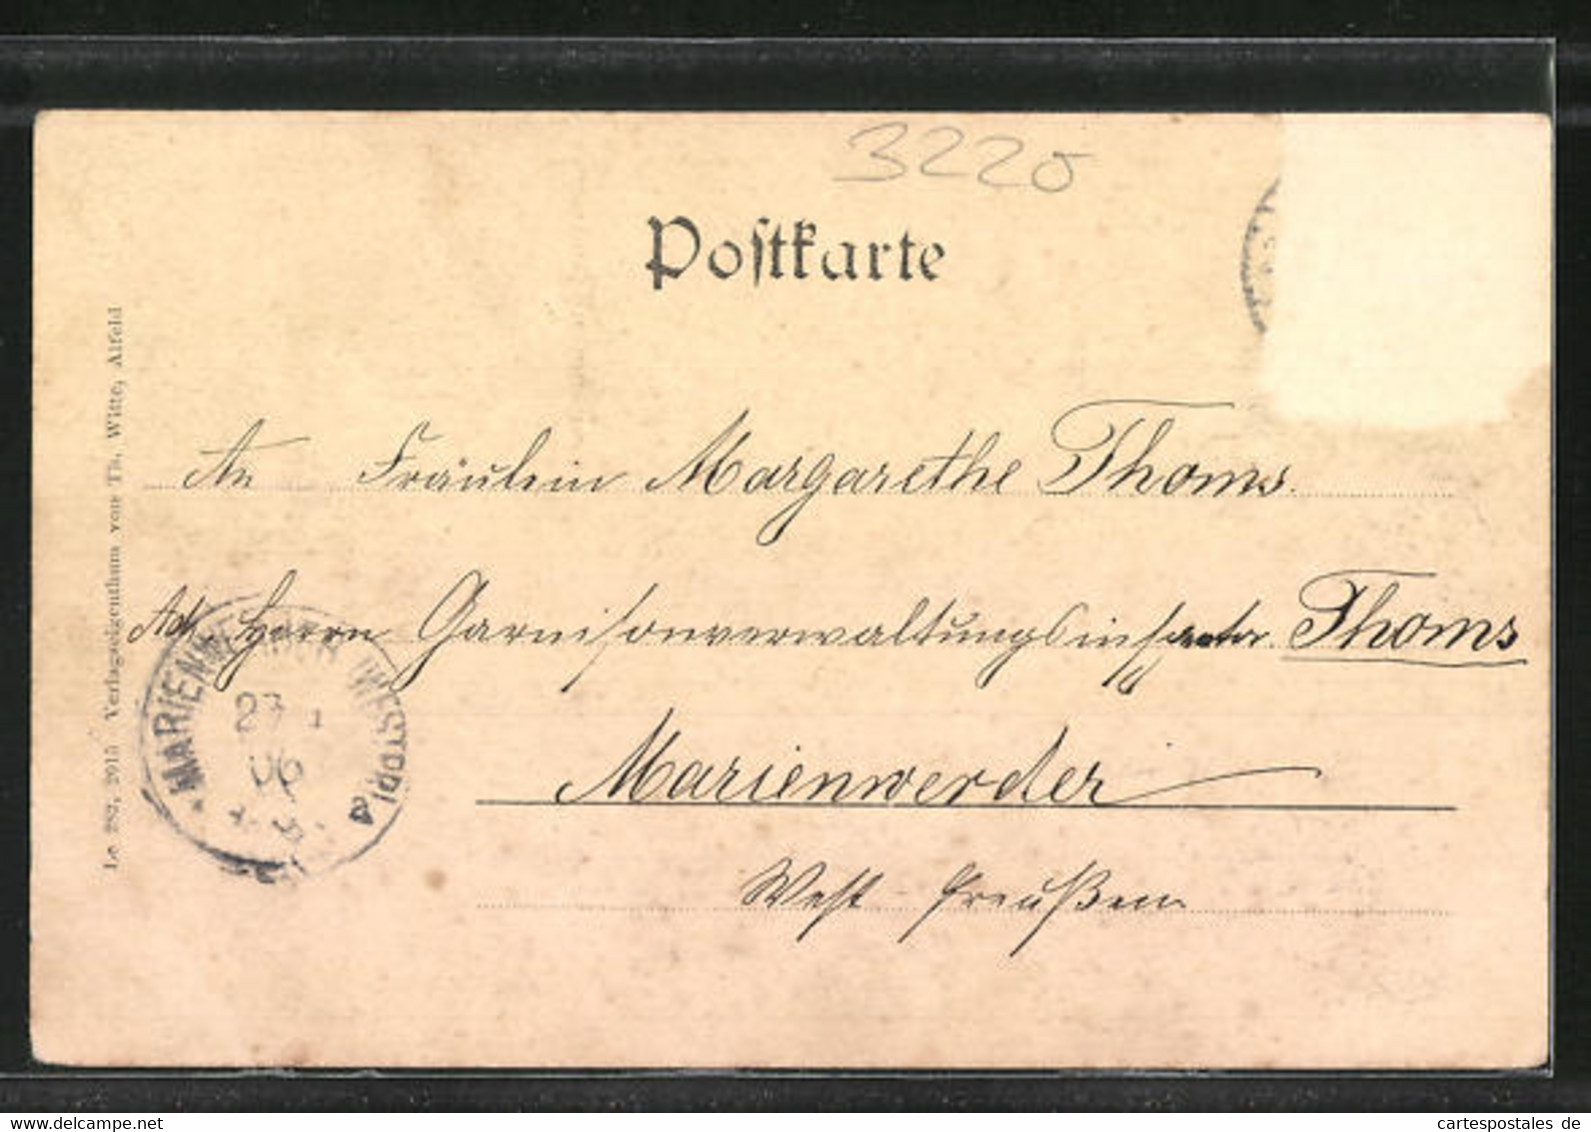 3220
Postkarte
An Fräulein Margarethe Thoms.
Adr. Herrn Garnisonverwaltungsinspektor Thoms
Marienwerder
West-Preußen
MARIENWERDER (WESTPR) a
27 1
06
Le 282, 2915 Verlagseigenthum von Th. Witte, Alfeld
www.delcampe.net
cartespostales de